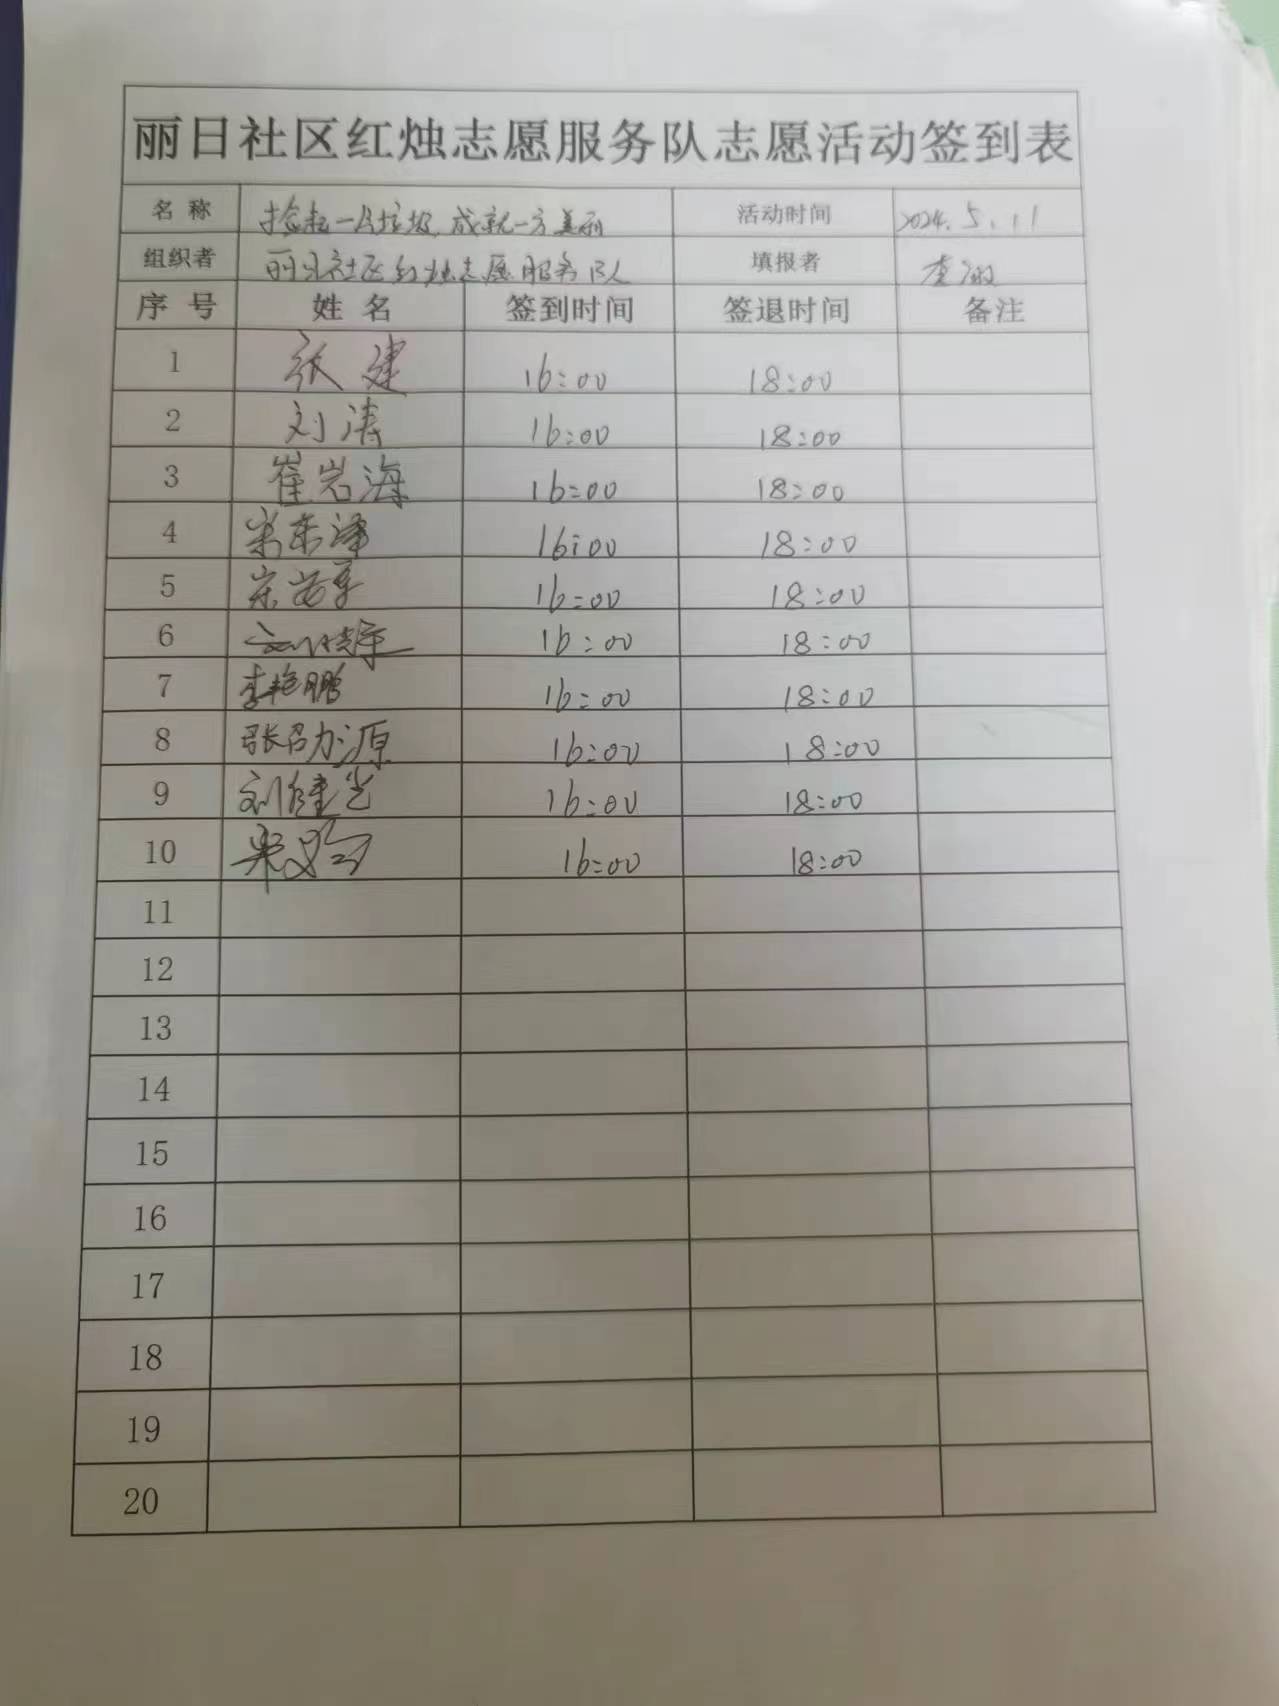 丽日社区红烛志愿服务队志愿活动签到表
名 称 捡起一片垃圾,成就一方美丽 活动时间 2024.5.11
组织者 丽日社区红烛志愿服务队 填报者 李
序 号 姓 名 签到时间 签退时间 备注
1 张建 16:00 18:00
2 刘涛 16:00 18:00
3 崔岩海 16:00 18:00
4 16:00 18:00
5 16:00 18:00
6 16:00 18:00
7 李艳鹏 16:00 18:00
8 张召源 16:00 18:00
9 刘健 16:00 18:00
10 16:00 18:00
11
12
13
14
15
16
17
18
19
20